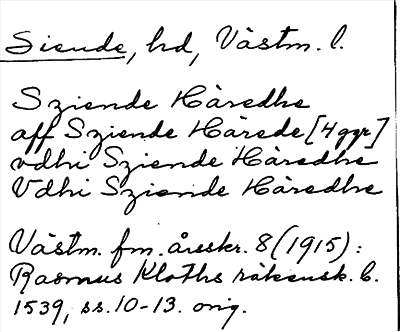 Siende, hd, Västm. l.
Sziende Häredhe
aff Sziende Härede [4 ggr]
vdhi Sziende Häredhe
Vdhi Sziende Häredhe
Västm. fm. årsskr. 8 (1915):
Rasmus Kloths räkensk. b.
1539, ss. 10-13. orig.